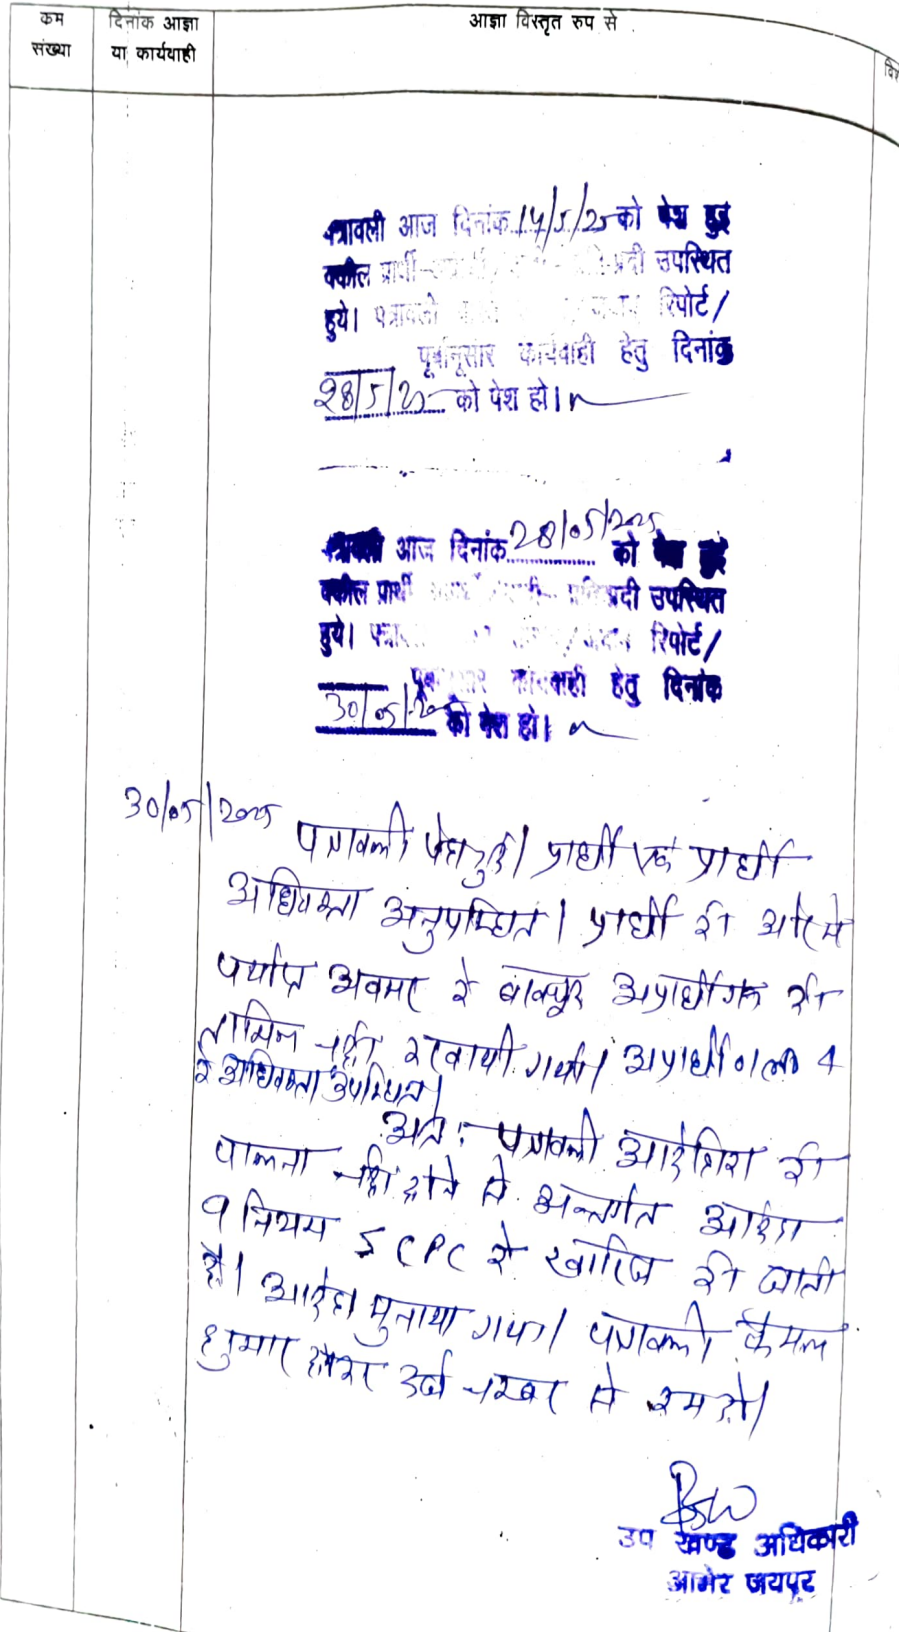 कम
संख्या
दिनांक आज्ञा
या कार्यवाही
आज्ञा विस्तृत रुप से
वि
पत्रावली आज दिनांक 14/5/25 को पेश हुई
वकील प्रार्थी उपस्थित
हुये। पत्रावली रिपोर्ट/
पूर्वानुसार कार्यवाही हेतु दिनांक
28/5/25 को पेश हो।
पत्रावली आज दिनांक 28/05/2025 को पेश हुई
वकील प्रार्थी उपस्थित
हुये। रिपोर्ट/
पूर्वानुसार कार्यवाही हेतु दिनांक
30/05/20 को पेश हो।
30/05/2025
पत्रावली पेश हुई। प्रार्थी एवं प्रार्थी
अधिवक्ता अनुपस्थित। प्रार्थी की ओर से
पर्याप्त अवसर के बावजूद अप्रार्थीगण की
तामिल नहीं करवायी गयी। अप्रार्थी 4
के अधिवक्ता उपस्थित।
अतः पत्रावली आदेशिका की
पालना नहीं होने से अन्तर्गत आदेश
9 नियम 5 CPC के खारिज की जाती
है। आदेश सुनाया गया। पत्रावली फैसल
शुमार होकर दर्ज नम्बर से कम हो।
उप खण्ड अधिकारी
आमेर जयपुर